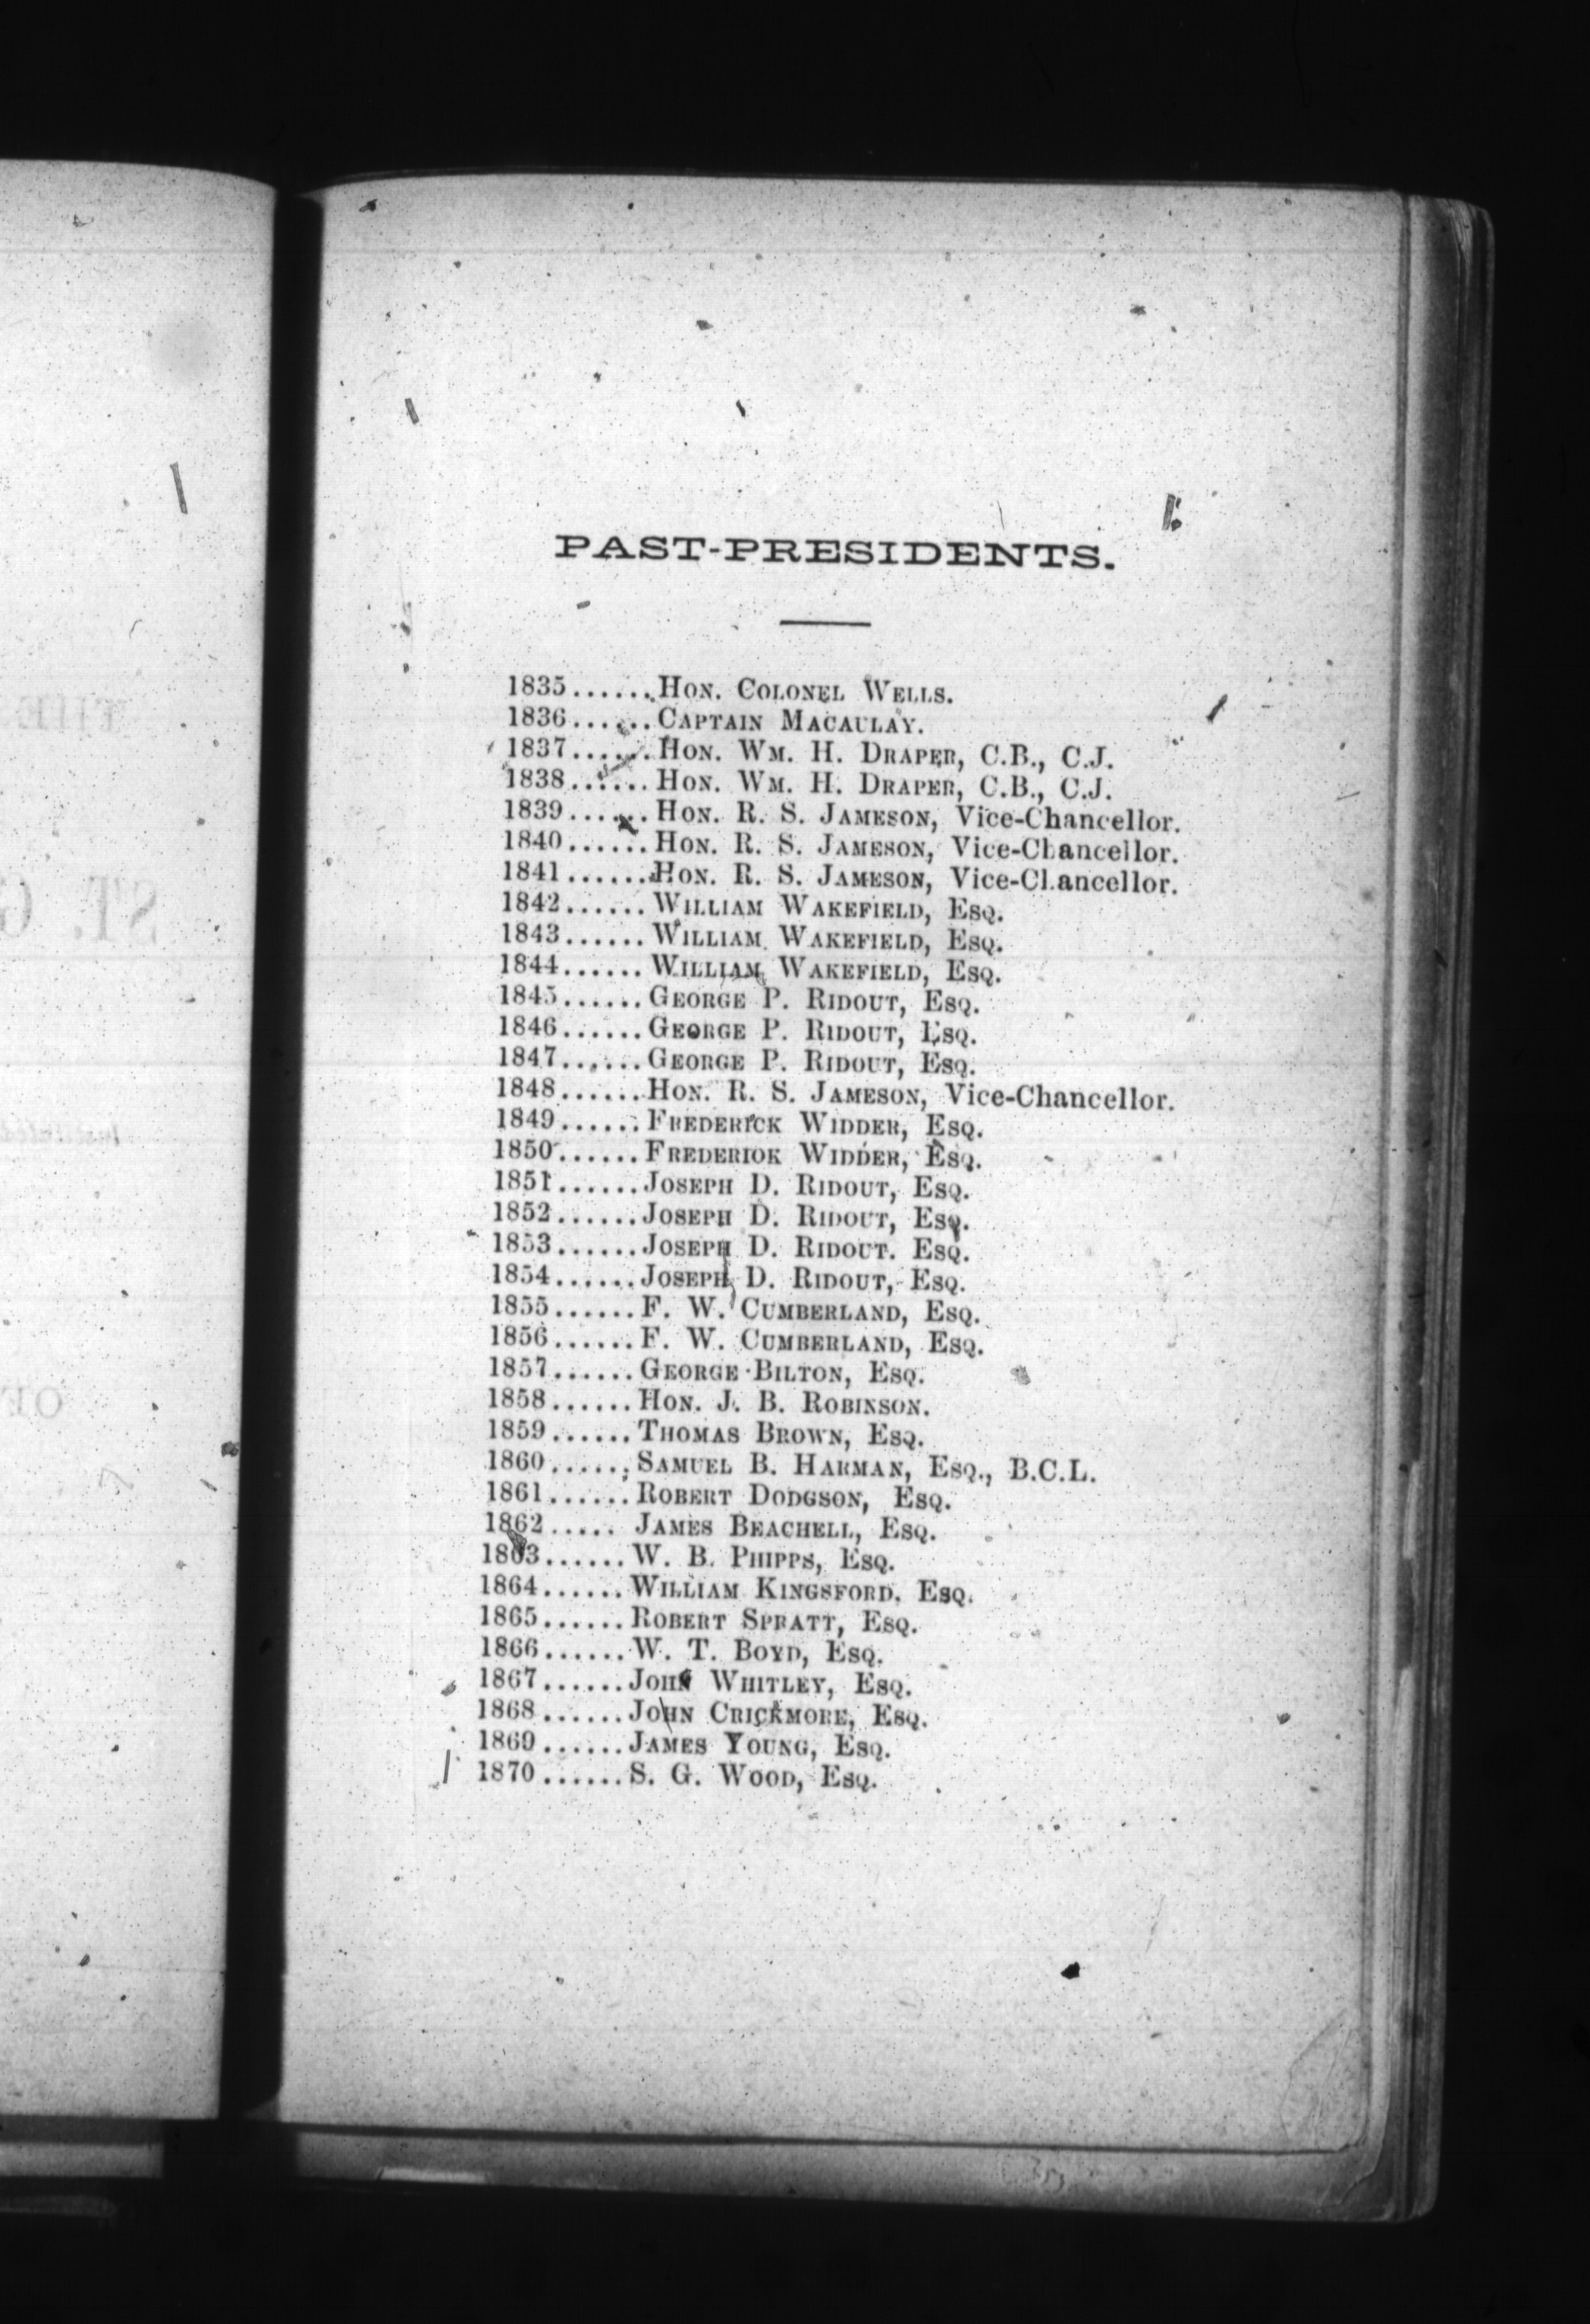 PAST-PRESIDENTS.
1835......Hon. Colonel Wells.
1836......Captain Macaulay.
1837......Hon. Wm. H. Draper, C.B., C.J.
1838......Hon. Wm. H. Draper, C.B., C.J.
1839......Hon. R. S. Jameson, Vice-Chancellor.
1840......Hon. R. S. Jameson, Vice-Chancellor.
1841......Hon. R. S. Jameson, Vice-Chancellor.
1842......William Wakefield, Esq.
1843......William Wakefield, Esq.
1844......William Wakefield, Esq.
1845......George P. Ridout, Esq.
1846......George P. Ridout, Esq.
1847......George P. Ridout, Esq.
1848......Hon. R. S. Jameson, Vice-Chancellor.
1849......Frederick Widder, Esq.
1850......Frederick Widder, Esq.
1851......Joseph D. Ridout, Esq.
1852......Joseph D. Ridout, Esq.
1853......Joseph D. Ridout. Esq.
1854......Joseph D. Ridout, Esq.
1855......F. W. Cumberland, Esq.
1856......F. W. Cumberland, Esq.
1857......George Bilton, Esq.
1858......Hon. J. B. Robinson.
1859......Thomas Brown, Esq.
1860......Samuel B. Harman, Esq., B.C.L.
1861......Robert Dodgson, Esq.
1862..... James Beachell, Esq.
1863......W. B. Phipps, Esq.
1864......William Kingsford, Esq.
1865......Robert Spratt, Esq.
1866......W. T. Boyd, Esq.
1867......John Whitley, Esq.
1868......John Crickmore, Esq.
1869......James Young, Esq.
1870......S. G. Wood, Esq.